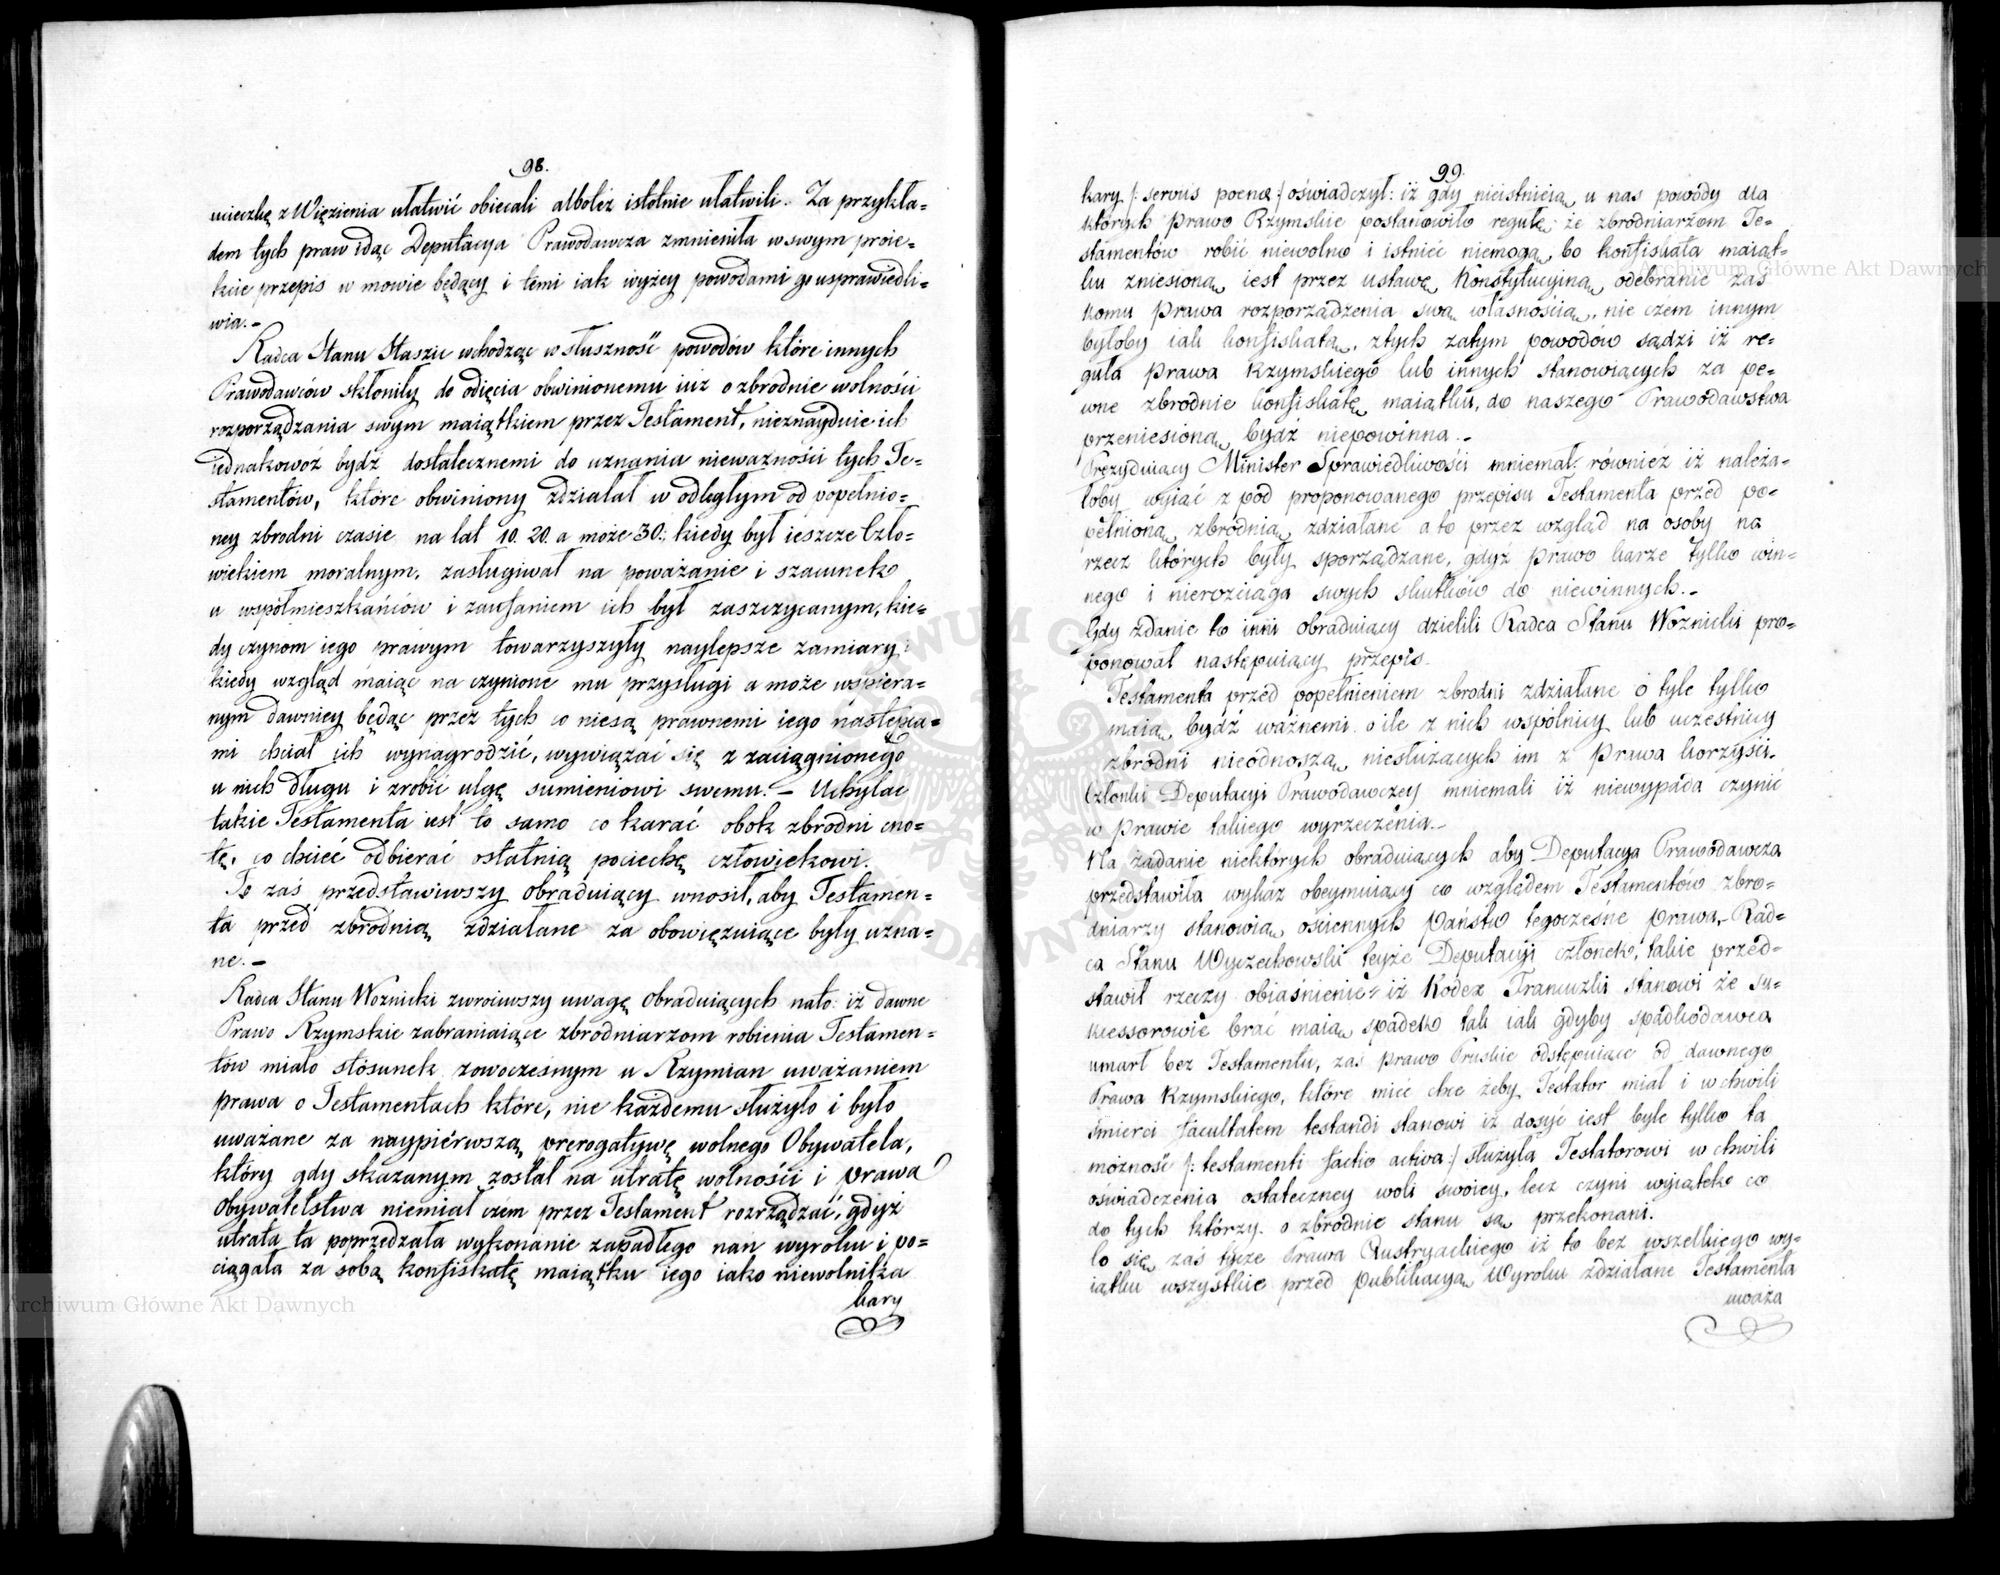 98.
ucieczkę z Więzienia ułatwić obiecali albotéz istotnie ułatwili. Za przykła=
dem tych praw idąc Deputacya Prawodawcza zmieniła w swym proie=
kcie przepis w mowie będący i temi iak wyżey powodami go usprawiedli=
wia.–
Radca Stanu Staszic wchodząc w słuszność powodów które innych
Prawodawców skłoniły do odięcia obwinionemu iuż o zbrodnie wolności
rozporządzania swym maiątkiem przez Testament, nieznayduie ich
iednakowoż bydź dostatecznemi do uznania nieważności tych Te=
stamentów, które obwiniony zdziałał w odległym od popełnio=
ney zbrodni czasie na lat 10. 20. a może 30.; kiedy był ieszcze Czło=
wiekiem moralnym, zasługiwał na poważanie i szacunek
u współmieszkańców i zaufaniem ich był zaszczycanym, kie=
dy czynom iego prawym towarzyszyły naylepsze zamiary;
kiedy wzgląd maiąc na czynione mu przysługi a może wspiera=
nym dawniey będąc przez tych co niesą prawnemi iego następca=
mi chciał ich wynagrodzić, wywiązać się z zaciągnionego
u nich długu i zrobić ulgę sumieniowi swemu.– Uchylać
takie Testamenta iest to samo co karać obok zbrodni cno=
tę, co chcieć odbierać ostatnią pociechę człowiekowi.
To zaś przedstawiwszy obraduiący wnosił, aby Testamen=
ta przed zbrodnią zdziałane za obowięzuiące były uzna=
ne.–
Radca Stanu Woźnicki zwróciwszy uwagę obraduiących nato: iż dawne
Prawo Rzymskie zabraniaiące zbrodniarzom robienia Testamen=
tów miało stósunek zowoczesnym u Rzymian uważaniem
prawa o Testamentach które, nie każdemu służyło i było
uważane za naypiérwszą prerogatywę wolnego Obywatela,
który gdy skazanym został na utratę wolności i prawa
Obywatelstwa niemiał czém przez Testament rozrządzać, gdyż
utrata ta poprzedzała wykonanie zapadłego nań wyroku i po=
ciągała za sobą konfiskatę maiątku iego iako niewolnika
kary
99.
kary /: servus poenæ :/ oświadczył: iż gdy nieistnieią u nas powody dla
których Prawo Rzymskie postanowiło regułę że zbrodniarzom Te=
stamentów robić niewolno i istnieć niemogą, bo konfiskata maiąt=
ku zniesioną iest przez ustawę Konstytucyiną, odebranie zaś
komu Prawa rozporządzenia swą własnością, nie czem innym
byłoby iak konfiskatą, ztych zatym powodów sądzi iż re=
guła Prawa Rzymskiego lub innych stanowiących za pe=
wne zbrodnie konfiskatę maiątku, do naszego Prawodawstwa
przeniesioną bydź niepowinna.–
Prezyduiący Minister Sprawiedliwości mniemał również iż należa=
łoby wyiąć z pod proponowanego przepisu Testamenta przed po=
pełnioną zbrodnią zdziałane a to przez wzgląd na osoby na
rzecz których były sporządzane, gdyż prawo karze tylko win=
nego i nierozciąga swych skutków do niewinnych.–
Gdy zdanie to inni obraduiący dzielili Radca Stanu Woznicki pro=
ponował następuiący przepis.
Testamenta przed popełnieniem zbrodni zdziałane o tyle tylko
maią bydź ważnemi o ile z nich wspólnicy lub uczestnicy
zbrodni nieodnoszą niesłużących im z Prawa korzyści.
Członki Deputacyi Prawodawczey mniemali iż niewypada czynić
w Prawie takiego wyrzeczenia.–
Na żądanie niektórych obraduiących aby Deputacya Prawodawcza
przedstawiła wykaz obeymuiący co względem Testamentów zbro=
dniarzy stanowią ościennych Państw tegoczesne Prawa, Rad=
ca Stanu Wyczechowski teyże Deputacyi członek, takie przed=
stawił rzeczy obiaśnienie: iż Kodex Francuzki stanowi że su=
kcessorowie brać maią spadek tak iak gdyby spadkodawca
umarł bez Testamentu, zaś prawo Pruskie odstępuiąc od dawnego
Prawa Rzymskiego, które mieć chce żeby Testator miał i w chwili
śmierci facultatem testandi stanowi iż dosyć iest byle tylko ta
możność /: testamenti factio activa :/ służyła Testatorowi w chwili
oświadczenia ostateczney woli swoiey, lecz czyni wyiątek co
do tych którzy o zbrodnie stanu są przekonani.
Co się zaś tycze Prawa Austryackiego iż to bez wszelkiego wy=
iątku wszystkie przed Publikacyą Wyroku zdziałane Testamenta
uważa
Archiwum Główne Akt Dawnych
Archiwum Główne Akt Dawnych